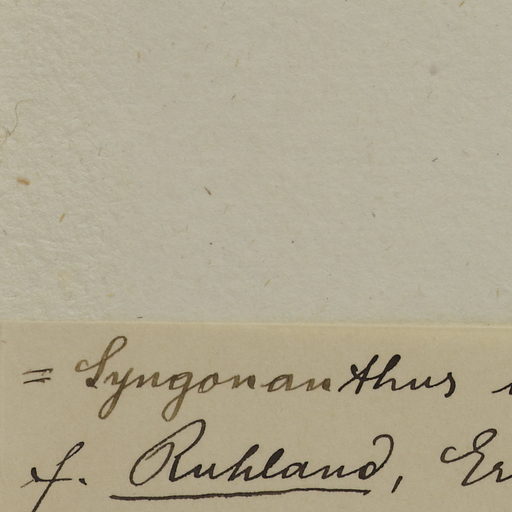 = Syngonanthus
f. Ruhland, Er